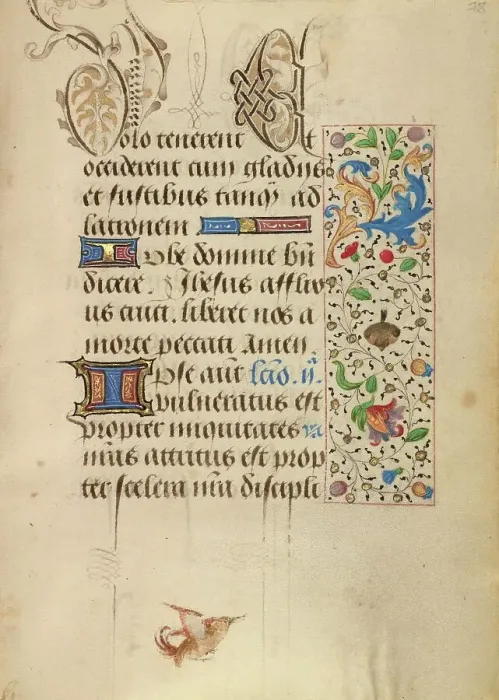 Dolo tenerent Et
occiderent cum gladiis
et fustibus tanq̄ ad
latronem
Iube domine bn̄
dicere. Ihesus
us cruci. liberet nos a
morte peccati Amen
Ipse aut̄ lc̄io. ii.
vulneratus est
propter iniquitates
nr̄as attritus est prop
ter scelera nr̄a discipli